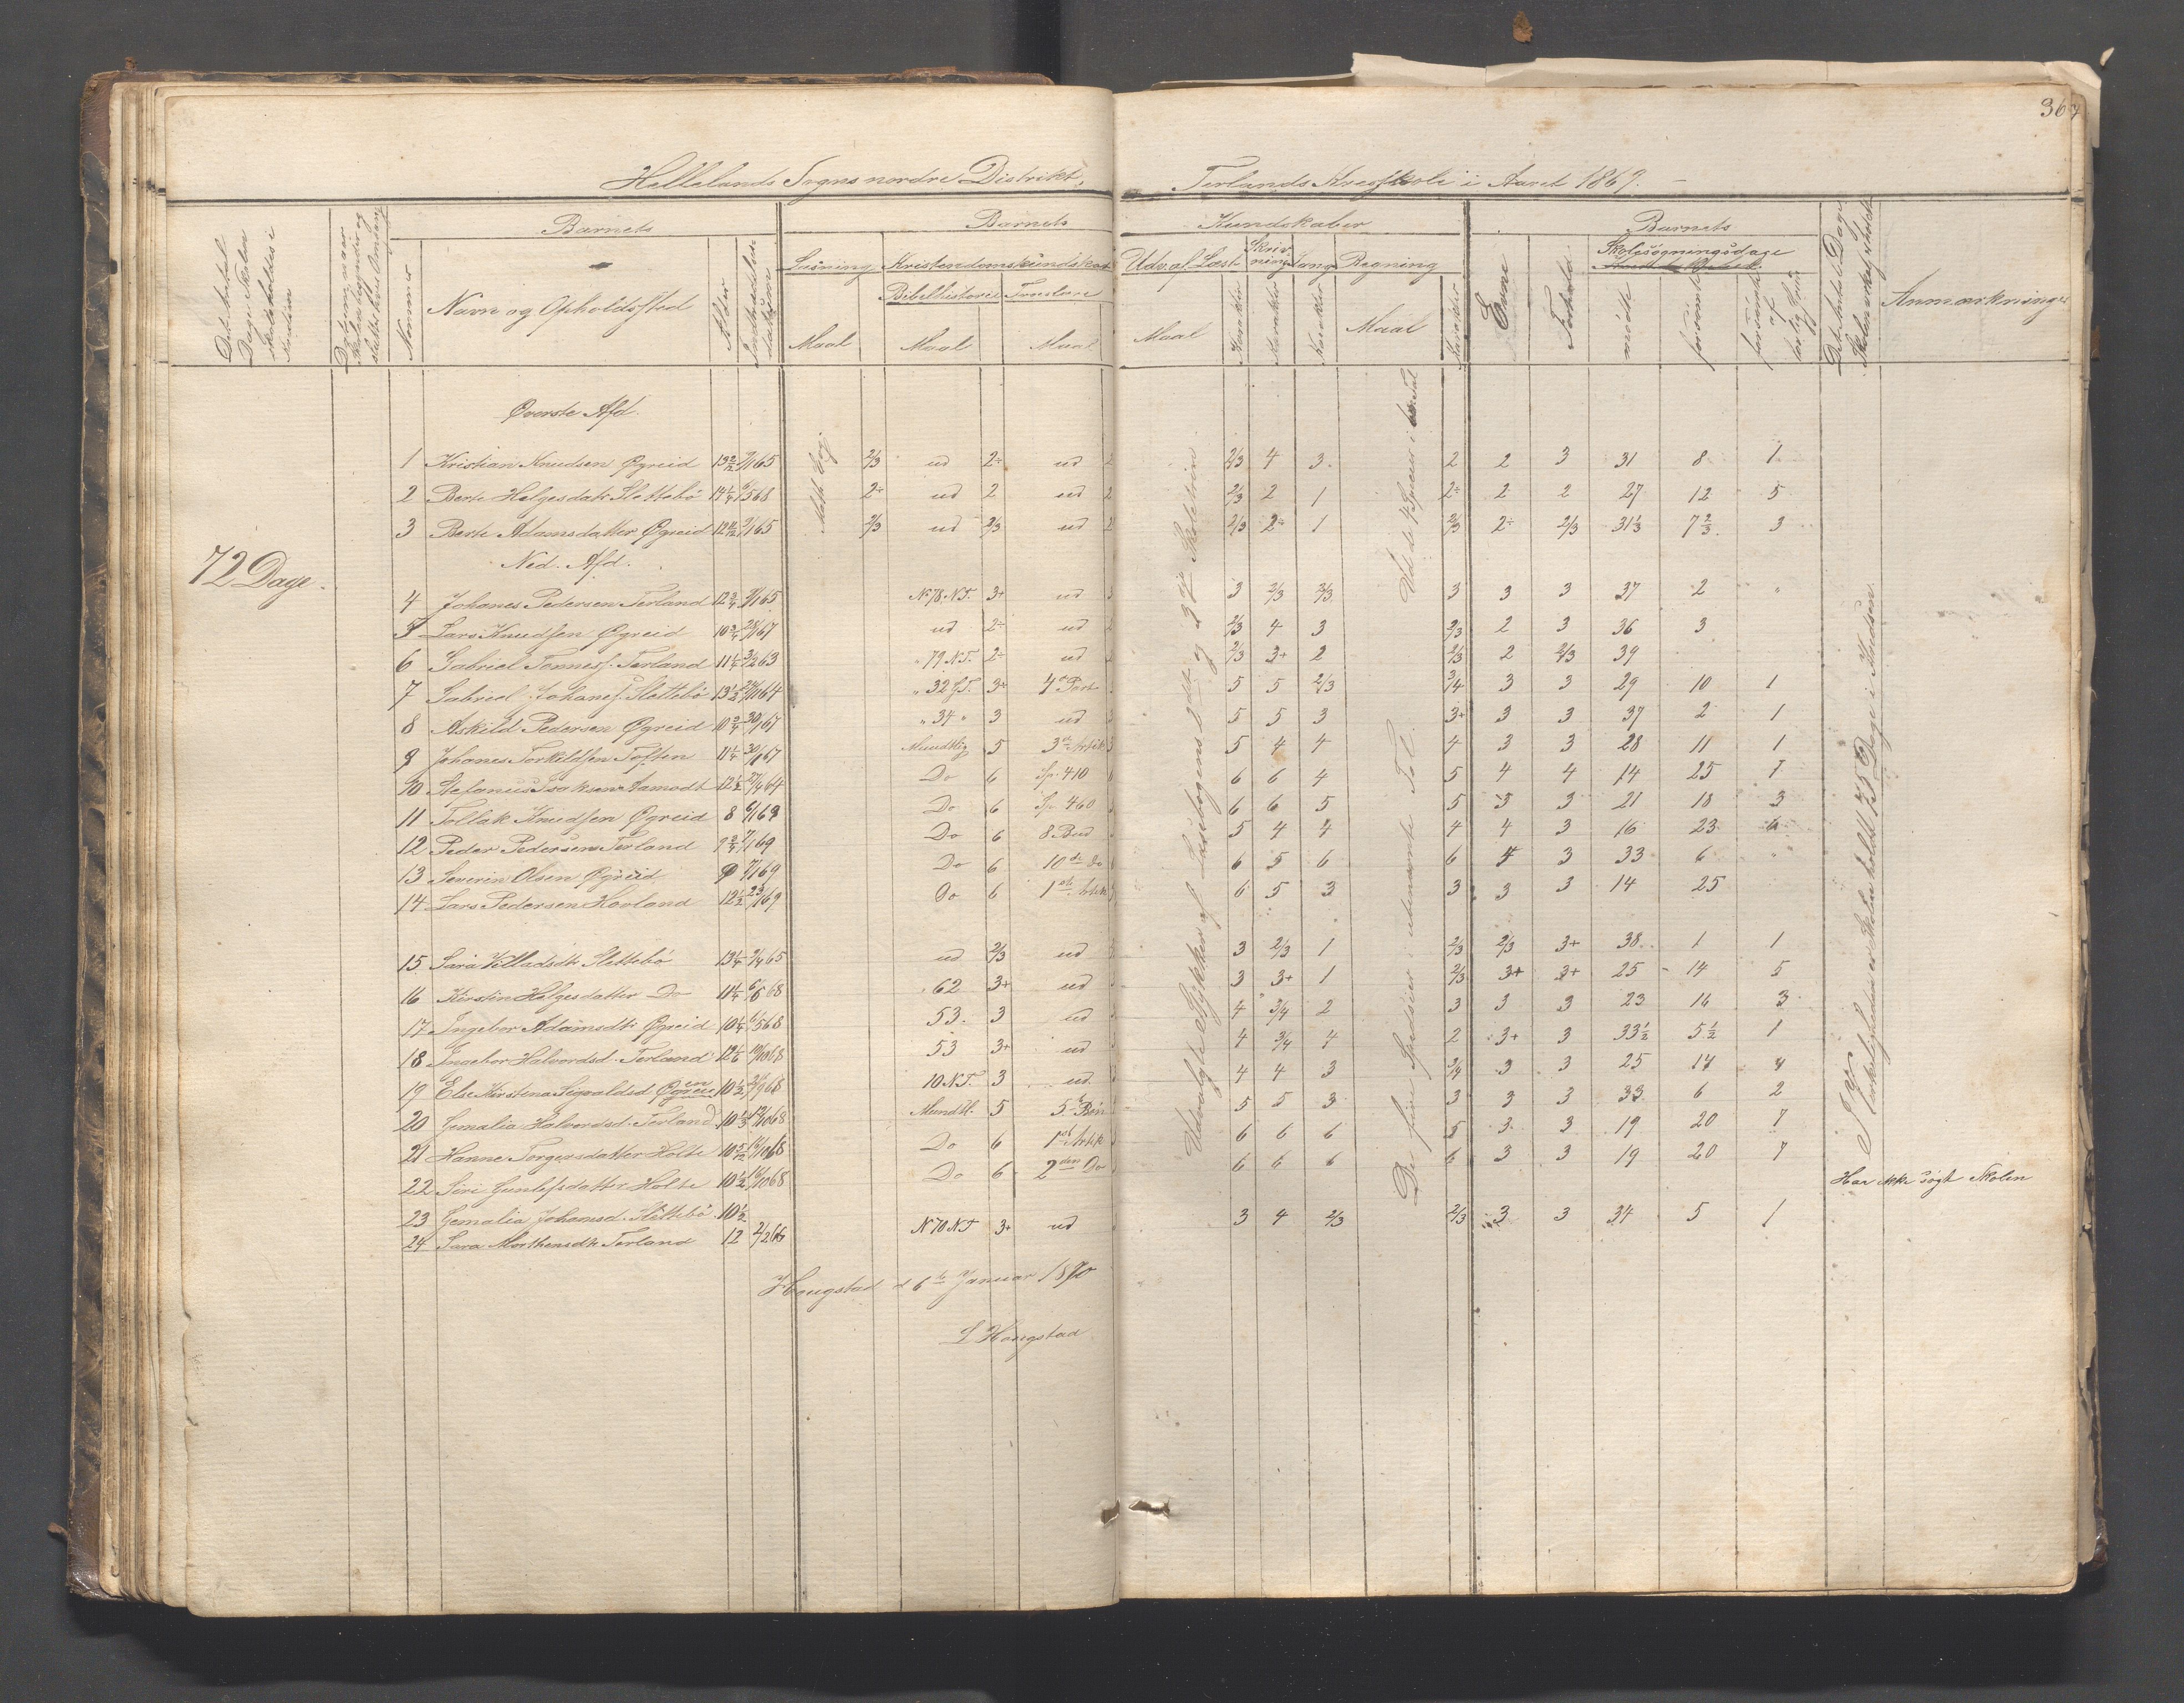 367
Hellelands Sogns nordre Distrikt, Terlands Kredsskole i Aaret 1869.
Barnets Barnets Kundskaber Barnets
Læsning Kristendomskundskab Udv. af Læseb. Skrivning Sang Regning Evne Forhold Skolesøgningsdage
Bibelhistorie Troeslære
Nummer Navn og Opholdssted Alder Indtrædelsesdatum Maal Maal Maal Maal Karakter Karakter Karakter Maal Karakter mødte forsømte forsømte af lovlig Grund Anmærkninger
Øverste Afd.
1 Kristian Knudsen Øgreid 65 2/3 ud 2÷ ud 2/3 4 3 2 2 3 31 8 1
2 Berte Helgesdatr Slettebø 14 1/4 68 2÷ ud 2 ud 2/3 2 1 2÷ 2 2 27 12 5
3 Berte Adamsdatter Øgreid 65 2/3 ud 2/3 ud 2/3 2÷ 1 2/3 2÷ 2/3 31 1/3 7 2/3 3
72 Dage.
Ned. Afd.
4 Johanes Pedersen Terland 12 3/4 65 No 78 N.T. 3+ ud 3 2/3 2/3 3 3 3 37 2 "
5 Lars Knudsen Øgreid 10 3/4 67 ud 2÷ ud 2/3 4 3 2/3 2 3 36 3
6 Gabriel Tønness. Terland 11 1/4 63 " 79 N.T. 2÷ ud 2/3 3+ 2 2/3 2 2/3 39
7 Gabriel Johanes. Slettebø 13 1/2 64 " 32 G.T. 3+ 4de Part 5 5 2/3 3/4 3 3 29 10 1
8 Askild Pedersen Øgreid 10 3/4 67 " 34 " 3 ud 5 5 3 3+ 3 3 37 2 1
9 Johanes Torkildsen Toften 11 1/4 67 Mundtlig 5 3die Artik 5 4 4 4 3 3 28 11 1
10 Stefanus Isaksen Aamodt 12 1/2 64 Do 6 Sp. 410 6 6 4 5 4 4 14 25 1
11 Tollak Knudsen Øgreid 8 69 Do 6 Sp. 460 6 6 5 5 3 3 21 18 3
12 Peder Pedersen Terland 69 Do 6 8 Bud 5 4 4 4 4 3 16 23 6
13 Severin Olsen Øgreid 9 69 Do 6 10de Do 6 5 6 6 4 3 33 6 "
14 Lars Pedersen Hovland 12 1/2 69 Do 6 1ste Artik 6 5 3 3 3 3 14 25
15 Sara Villadsdtr Slettebø 13 1/4 65 ud 2/3 ud 3 2/3 1 2/3 2/3 3+ 38 1 1
16 Kirstin Helgesdatter Do 11 1/4 68 62 3+ ud 3 3+ 1 2/3 3+ 3+ 25 14 5
17 Ingebor Adamsdtr Øgreid 10 1/4 68 53. 3 ud 4 3/4 2 3 3 3 23 16 3
18 Ingebor Halvordsd. Terland 12 1/6 68 53 3+ ud 4 3/4 4 2 3+ 3 33 1/2 5 1/2 1
19 Else Kirstena Sigvaldsd. Øgreid 10 1/2 68 10 N.T. 3 ud. 4 4 3 3/4 3 3 25 14 4
20 Gemalia Halvordsd. Terland 10 1/3 68 Mundtl. 5 5te Bøn 5 5 3 3 3 3 33 6 2
21 Hanne Torgersdatter Holte 10 5/12 68 Do 6 1ste Artik 6 6 6 5 3 3 19 20 7
22 Siri Gunlefsdatter Holte 10 1/2 68 Do 6 2den Do 6 6 6 6 3 3 19 20 7
23 Gemalia Johansd. Slettebø 10 1/2 Har ikke søgt Skolen
24 Sara Morthensdtr Terland 12 2/2 66 No 70 N.T 3+ ud 3 4 2/3 2/3 3 3 34 5 1
Udvalgte Stykker af Læsebogens 2det og 3die Skoletrin.
De fire Spesier i ubenævnte Tal.
Ud de 4 Specier i Tal
I Virkeligheden er Skolen holdt 75 Dage i Kredsen.
Hougstad d 6te Januar 1870
L Hougstad